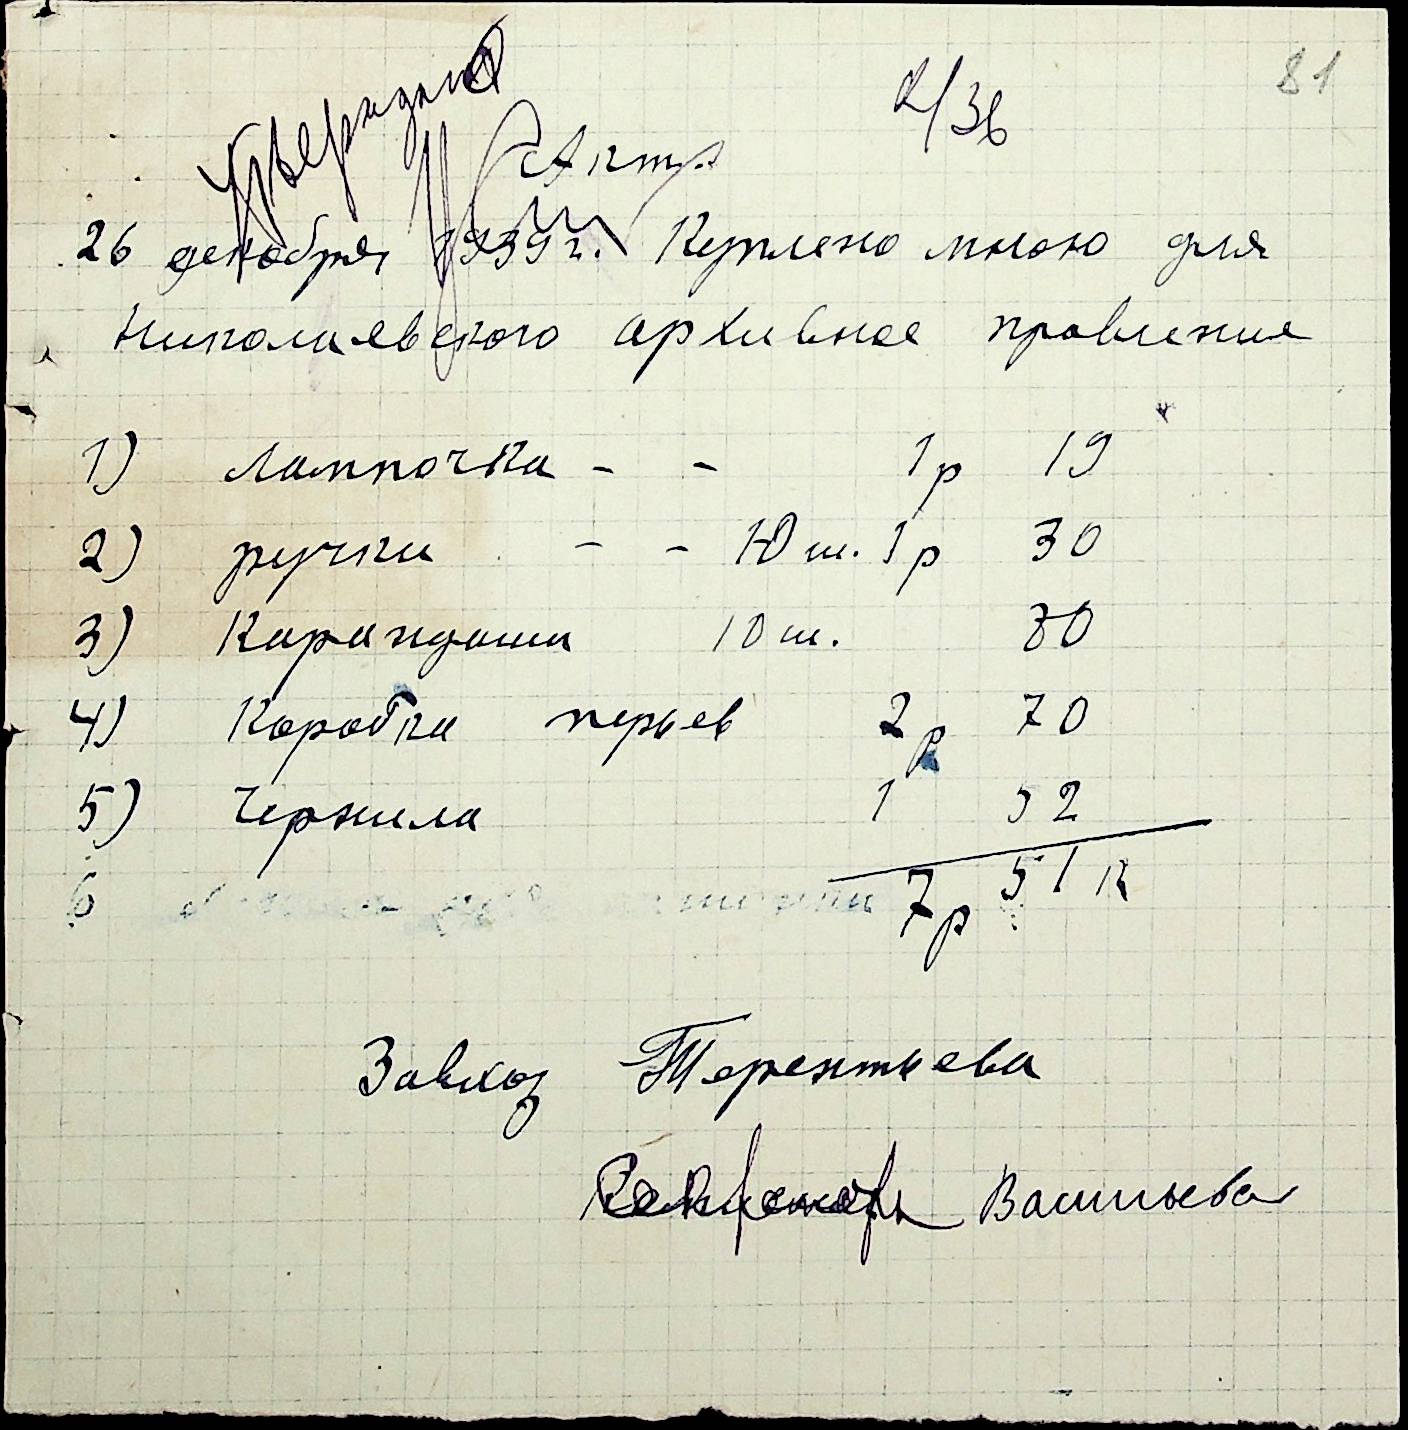 81
2/36
Утверждаю
Актъ
26 декабря 1939 г. Куплено мною для
Николаевского архивное провление
1) Лампочка - - 1 р 19
2) ручки - - 10 ш. 1 р 30
3) Карандаши 10 ш. 80
4) Коробка перьев 2 р 70
5) Чернила 1 52
7 р 51 к
6
Завхоз Терентьева
Васильева